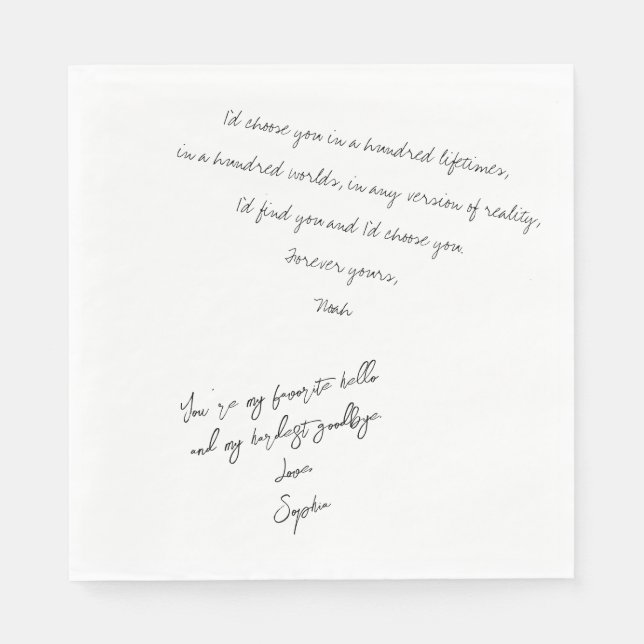 I'd choose you in a hundred lifetimes,
in a hundred worlds, in any version of reality,
I'd find you and I'd choose you.
Forever yours,
Noah
You're my favorite hello
and my hardest goodbye.
Love,
Sophia